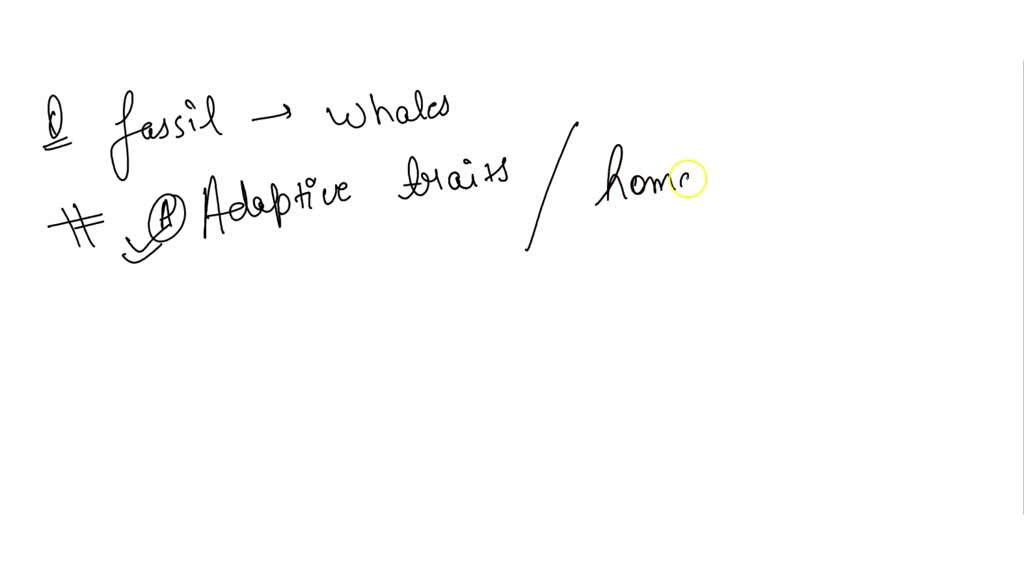 Q fassil → whales
# A Adaptive traits / homo